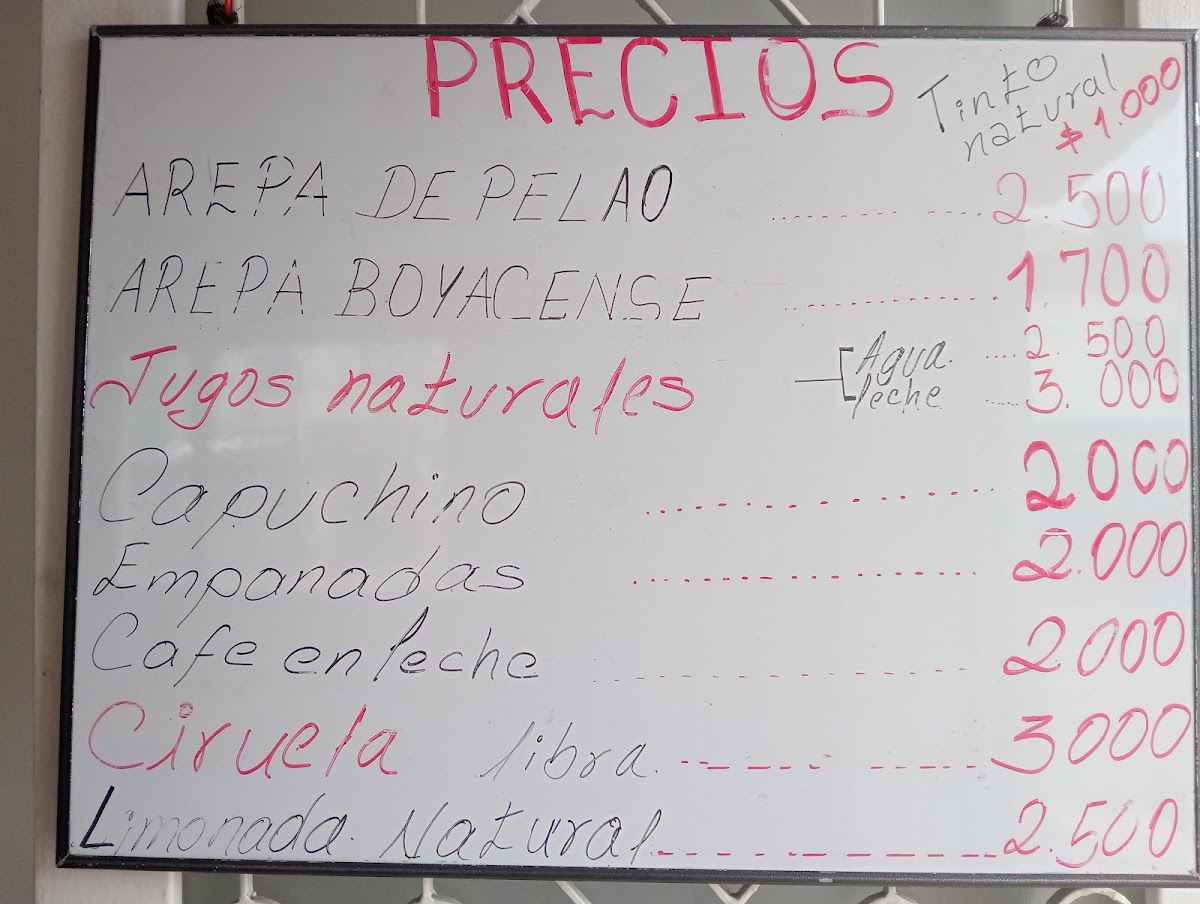 PRECIOS
Tinto
natural
$ 1.000
AREPA DE PELAO ................ 2.500
AREPA BOYACENSE ................ 1.700
Jugos naturales
Agua. .... 2. 500
leche ..... 3. 000
Capuchino ................ 2000
Empanadas ................ 2.000
Cafe en leche ................ 2000
Ciruela libra. ------ ----- 3000
Limonada. Natural. - - - - - - - - 2.500